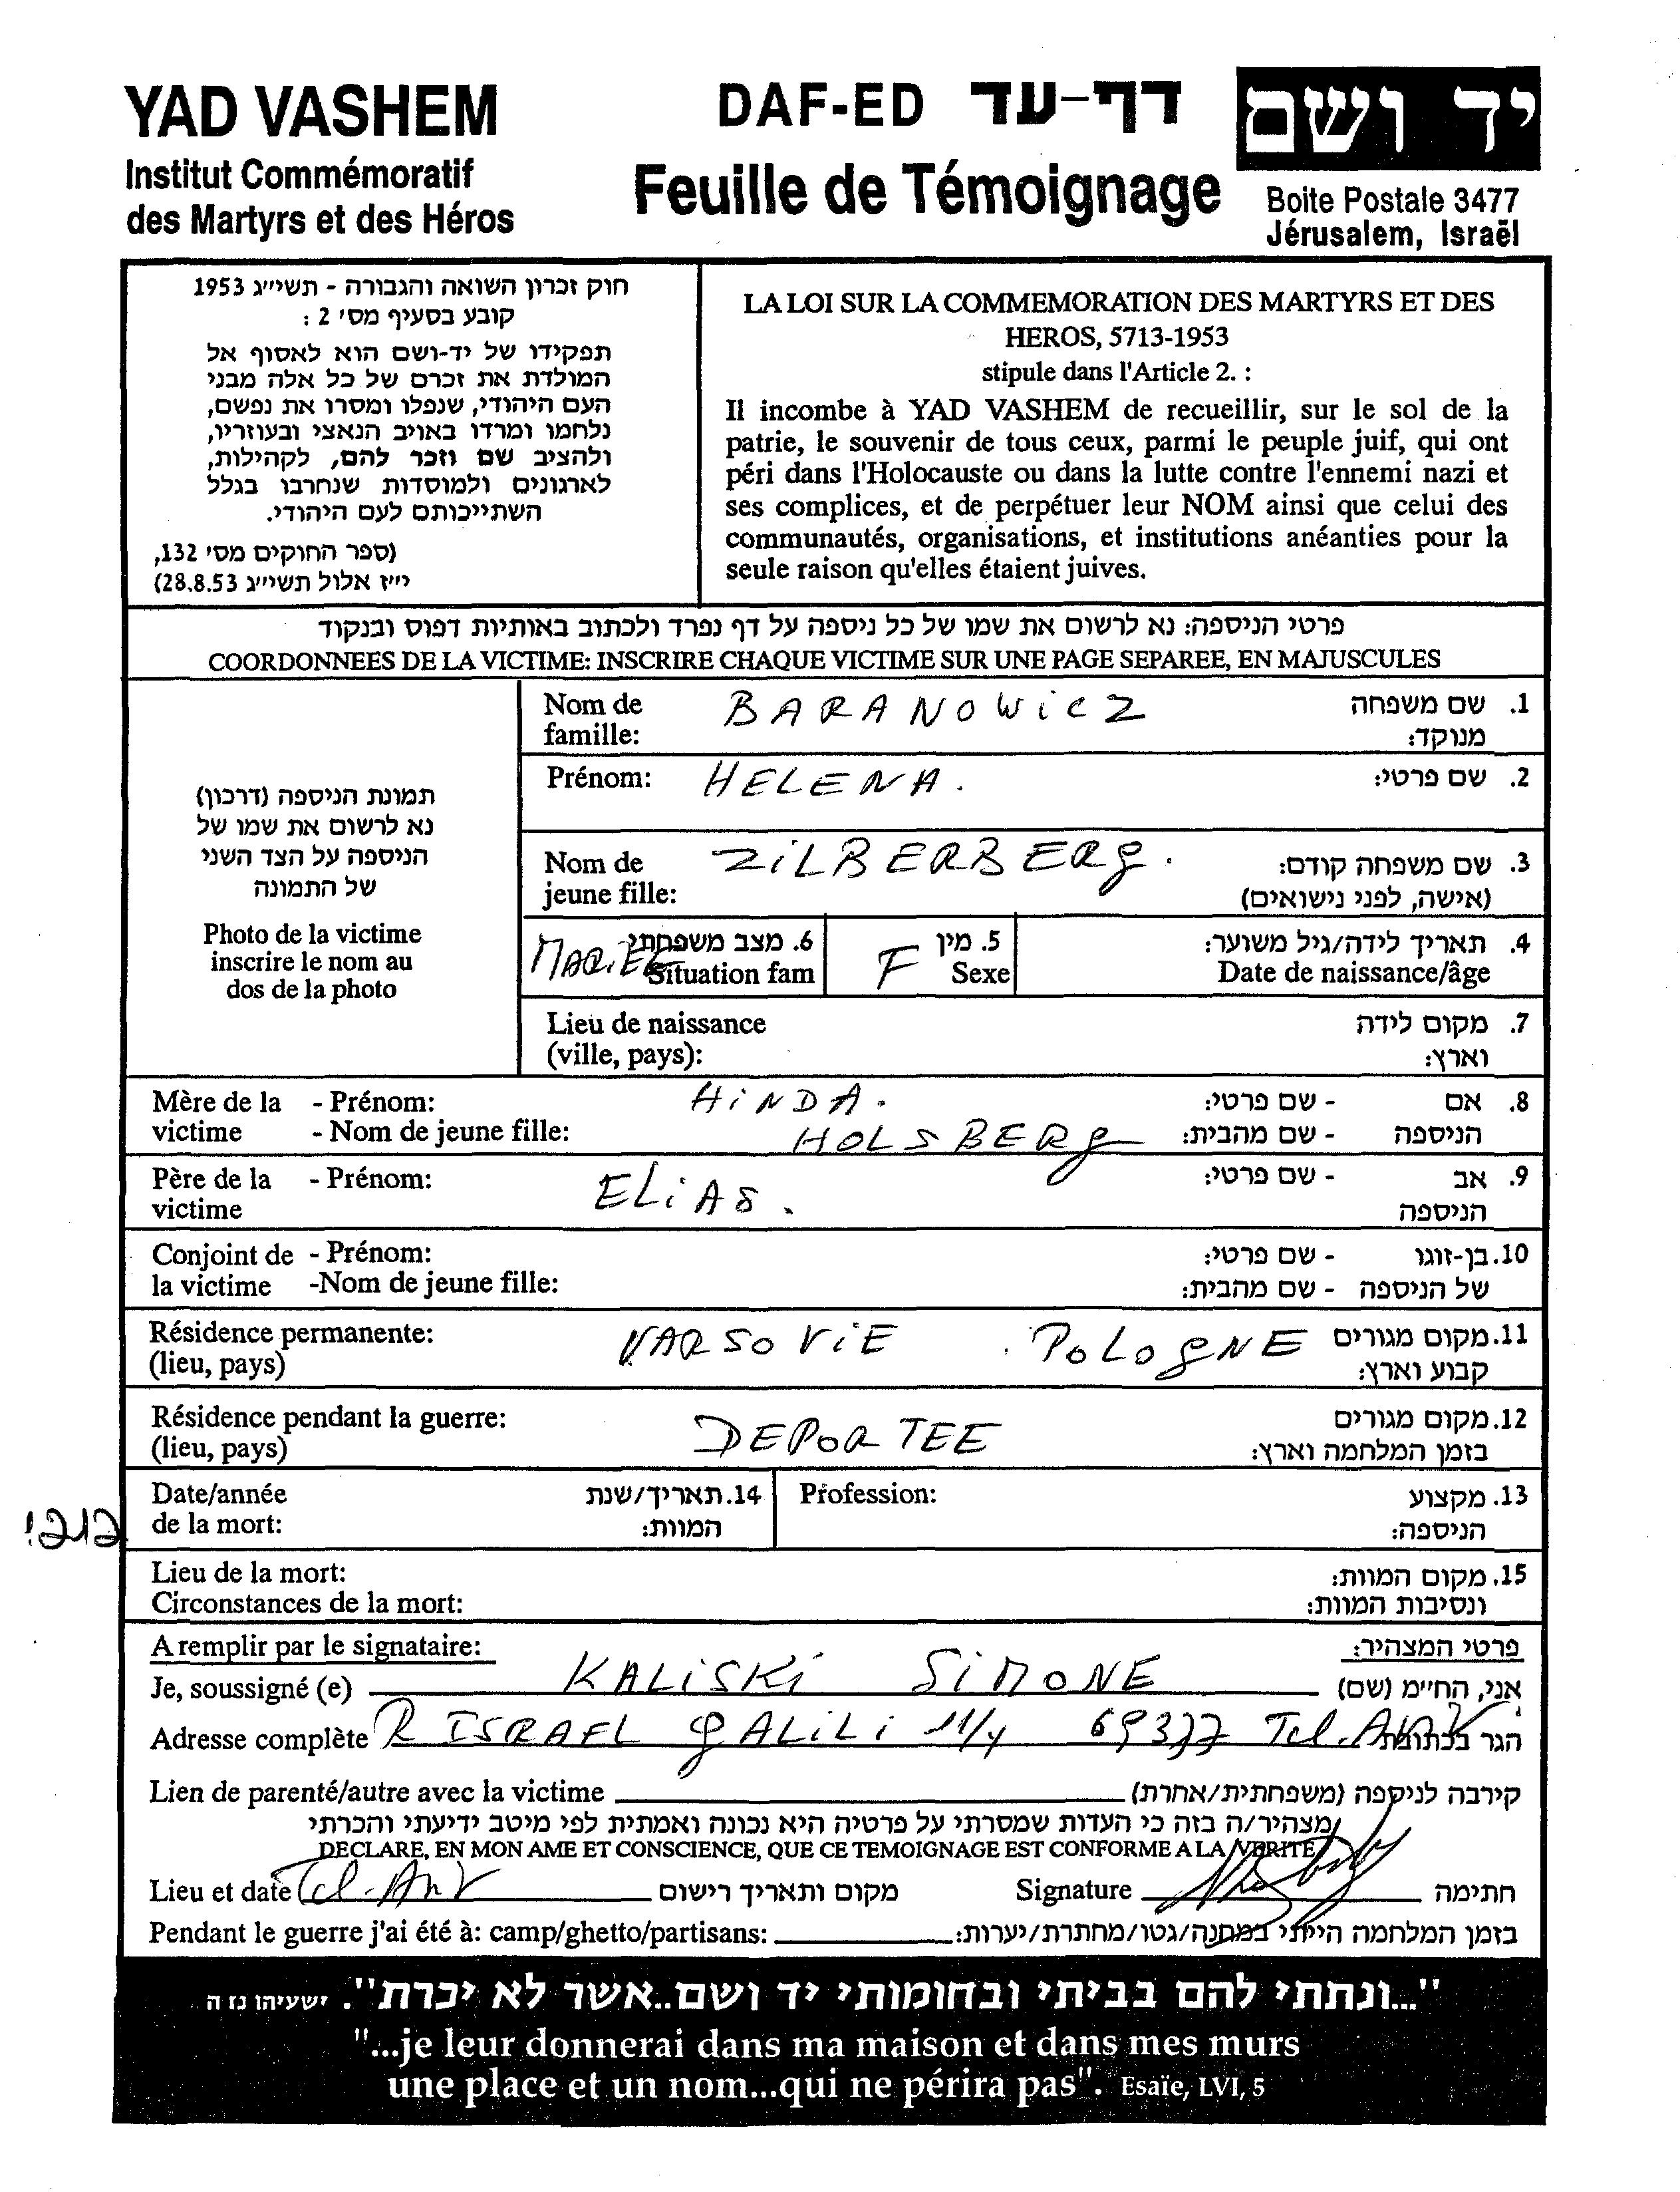 YAD VASHEM
Institut Commémoratif
des Martyrs et des Héros
DAF-ED דף-עד
Feuille de Témoignage
יד ושם
Boite Postale 3477
Jérusalem, Israël
חוק זכרון השואה והגבורה - תשי״ג 1953
קובע בסעיף מס׳ 2 :
תפקידו של יד-ושם הוא לאסוף אל
המולדת את זכרם של כל אלה מבני
העם היהודי, שנפלו ומסרו את נפשם,
נלחמו ומרדו באויב הנאצי ובעוזריו,
ולהציב שם וזכר להם, לקהילות,
לארגונים ולמוסדות שנחרבו בגלל
השתייכותם לעם היהודי.
(ספר החוקים מס׳ 132,
י״ז אלול תשי״ג 28.8.53)
LA LOI SUR LA COMMEMORATION DES MARTYRS ET DES
HEROS, 5713-1953
stipule dans l'Article 2. :
Il incombe à YAD VASHEM de recueillir, sur le sol de la
patrie, le souvenir de tous ceux, parmi le peuple juif, qui ont
péri dans l'Holocauste ou dans la lutte contre l'ennemi nazi et
ses complices, et de perpétuer leur NOM ainsi que celui des
communautés, organisations, et institutions anéanties pour la
seule raison qu'elles étaient juives.
פרטי הניספה: נא לרשום את שמו של כל ניספה על דף נפרד ולכתוב באותיות דפוס ובנקוד
COORDONNEES DE LA VICTIME: INSCRIRE CHAQUE VICTIME SUR UNE PAGE SEPAREE, EN MAJUSCULES
תמונת הניספה (דרכון)
נא לרשום את שמו של
הניספה על הצד השני
של התמונה
Photo de la victime
inscrire le nom au
dos de la photo
Nom de BARANOWicZ 1. שם משפחה
famille: מנוקד:
Prénom: HELENA. 2. שם פרטי:
Nom de ZiLBERBERg. 3. שם משפחה קודם:
jeune fille: (אישה, לפני נישואים)
MARiEE 6. מצב משפחתי F 5. מין 4. תאריך לידה/גיל משוער:
Situation fam Sexe Date de naissance/âge
Lieu de naissance 7. מקום לידה
(ville, pays): וארץ:
Mère de la - Prénom: HiNDA. - שם פרטי: 8. אם
victime - Nom de jeune fille: HOLSBERg - שם מהבית: הניספה
Père de la - Prénom: ELiAS. - שם פרטי: 9. אב
victime הניספה
Conjoint de - Prénom: - שם פרטי: 10. בן-זוגו
la victime -Nom de jeune fille: - שם מהבית: של הניספה
Résidence permanente: VARSOViE . POLOgNE 11. מקום מגורים
(lieu, pays) קבוע וארץ:
Résidence pendant la guerre: DEPORTEE 12. מקום מגורים
(lieu, pays) בזמן המלחמה וארץ:
Date/année 14. תאריך/שנת Profession: 13. מקצוע
de la mort: המוות: הניספה:
Lieu de la mort: 15. מקום המוות:
Circonstances de la mort: ונסיבות המוות:
A remplir par le signataire: פרטי המצהיר:
Je, soussigné (e) KALiSKi SiMONE אני, החי״מ (שם)
Adresse complète R ISRAEL gALiLi 11/4 69377 Tel. Aviv הגר בכתובת
Lien de parenté/autre avec la victime קירבה לניספה (משפחתית/אחרת)
מצהיר/ה בזה כי העדות שמסרתי על פרטיה היא נכונה ואמתית לפי מיטב ידיעתי והכרתי
DECLARE, EN MON AME ET CONSCIENCE, QUE CE TEMOIGNAGE EST CONFORME A LA VERITE
Lieu et date Tel-Aviv מקום ותאריך רישום Signature חתימה
Pendant le guerre j'ai été à: camp/ghetto/partisans: בזמן המלחמה הייתי במחנה/גטו/מחתרת/יערות:
"...ונתתי להם בביתי ובחומותי יד ושם..אשר לא יכרת". ישעיהו נז ה
"...je leur donnerai dans ma maison et dans mes murs
une place et un nom...qui ne périra pas". Esaïe, LVI, 5